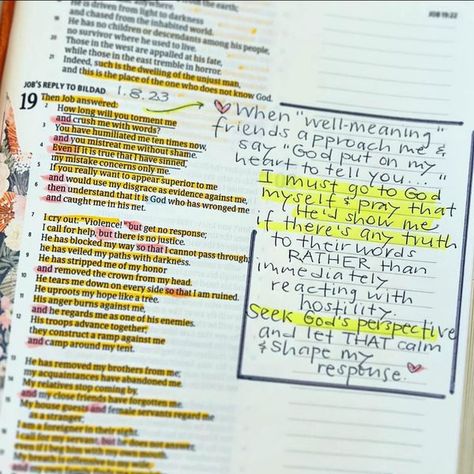 He is driven from light to darkness
and chased from the inhabited world.
He has no children or descendants among his people,
no survivor where he used to live.
20 Those in the west are appalled at his fate,
while those in the east tremble in horror.
21 Indeed, such is the dwelling of the unjust man,
and this is the place of the one who does not know God.
JOB 19:22
JOB'S REPLY TO BILDAD
1.8.23
19 Then Job answered:
2 How long will you torment me
and crush me with words?
3 You have humiliated me ten times now,
and you mistreat me without shame.
4 Even if it is true that I have sinned,
my mistake concerns only me.
5 If you really want to appear superior to me
and would use my disgrace as evidence against me,
6 then understand that it is God who has wronged me
and caught me in his net.
7 I cry out: "Violence!" but get no response;
I call for help, but there is no justice.
8 He has blocked my way so that I cannot pass through;
he has veiled my paths with darkness.
9 He has stripped me of my honor
and removed the crown from my head.
10 He tears me down on every side so that I am ruined.
He uproots my hope like a tree.
11 His anger burns against me,
and he regards me as one of his enemies.
12 His troops advance together;
they construct a ramp against me
and camp around my tent.
13 He has removed my brothers from me;
my acquaintances have abandoned me.
14 My relatives stop coming by,
and my close friends have forgotten me.
15 My house guests and female servants regard me
as a stranger;
I am a foreigner in their sight.
16 I call for my servant, but he does not answer,
even if I beg him with my own mouth.
17 My breath is offensive to my wife,
When "well-meaning"
friends approach me &
say "God put on my
heart to tell you..."
I must go to God
myself & pray that
He'd show me
if there's any truth
to their words
RATHER than
immediately
reacting with
hostility.
Seek God's perspective
and let THAT calm
& shape my
response.